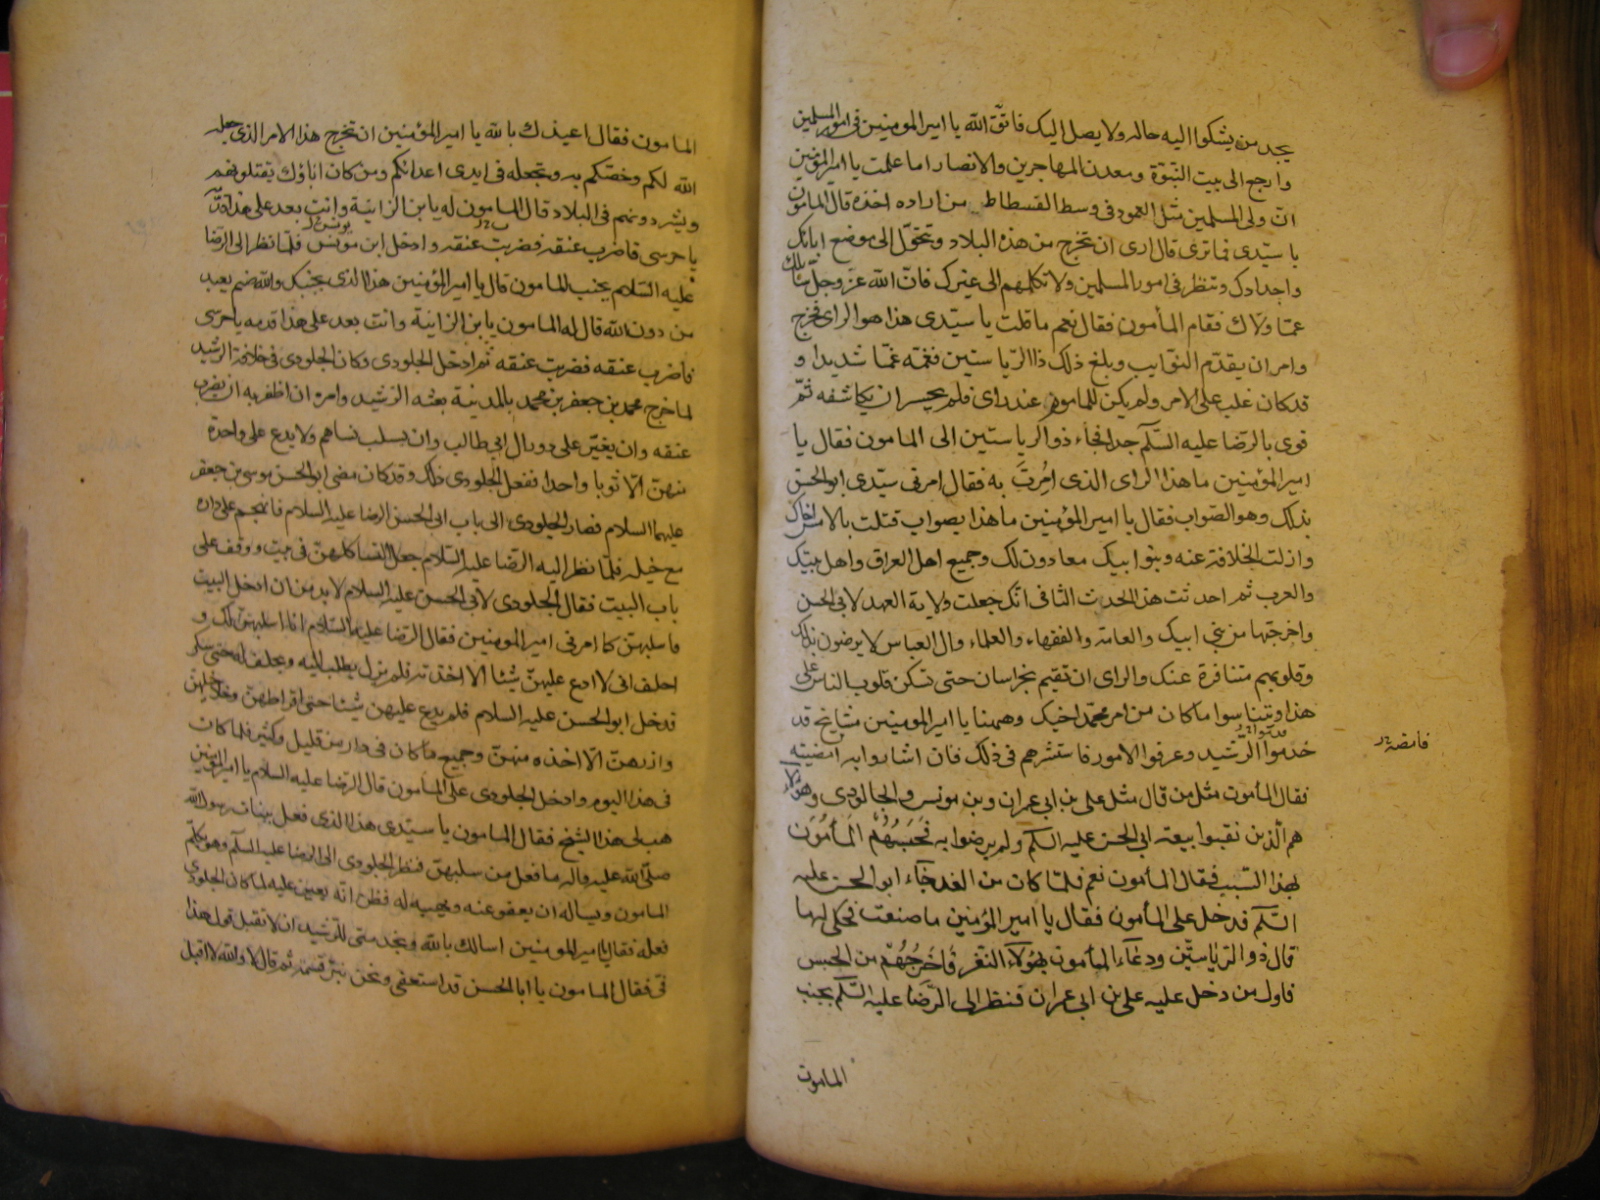 يجد من يشكوا اليه حاله ولا يصل اليك فاتق الله يا امير المومنين في امور المسلمين
وارجع الى بيت النبوّة ومعدن المهاجرين والانصار اما علمت يا امير المؤمنين
انّ ولى المسلمين مثل العمود في وسط الفسطاط من اراده اخذه قال المامون
يا سيّدى فما ترى قال ارى ان تخرج من هذه البلاد وتتحوّل الى موضع ابائك
واجدادك وتنظر في امور المسلمين ولا تكلهم الى غيرك فانّ الله عزّ وجلّ سائلك
عمّا ولاك فقام المأمون فقال نعم ما قلت يا سيّدى هذا هو الراى فخرج
وامر ان يقدّم النوّايب وبلغ ذلك ذا الرّياستين فغمّه غمّا شديدا و
قد كان غلب على الامر ولم يكن للمامون عنده راى فلم يجسر ان يكاشفه ثمّ
قوى بالرّضا عليه السّلم جدا فجاء ذو الرياستين الى المامون فقال يا
امير المؤمنين ما هذا الراى الذى امرت به فقال امرنى سيّدى ابو الحسن
بذلك وهو الصّواب فقال يا امير المؤمنين ما هذا بصواب قتلت بالامس اخاك
وازلت الخلافة عنه وبنوا ابيك معادون لك وجميع اهل العراق واهل بيتك
والعرب ثم احدثت هذا الحدث الثانى انّك جعلت ولاية العهد لابى الحسن
واخرجتها من بنى ابيك والعامة والفقهاء والعلماء وال العباس لا يرضون بذلك
وقلوبهم متنافرة عنك والراى ان تقيم بخراسان حتى تسكن قلوب الناس على
هذا ويتناسوا ما كان من امر محمّد اخيك وهيهنا يا امير المومنين مشايخ قد
خدموا الرّشيد وعرفوا الامور فاستشرهم في ذلك فان اشاروا به امضيته
فامضه
فقال المأمون مثل من قال مثل على بن ابى عمران وبن مونس والجالودى وهؤلاء
هم الّذين نقبوا بيعة ابى الحسن عليه السلم ولم يرضوا به فَحَبَسَهُمُ المَأمُون
لهذا السّبب فقال المأمون نعم فلمّا كان من الغد جآء ابو الحسن عليه
السّلم فدخل على المأمون فقال يا امير المؤمنين ما صنعت فحكى له ما
قال ذو الرّياستين ودعآء المأمون بهؤلآء النّفر فَاَخرجهم من الحبس
فاول من دخل عليه على بن ابى عمران فنظر الى الرّضا عليه السّلم بجنب
المامون
المامون فقال اعيذك بالله يا امير المؤمنين ان تخرج هذا الامر الذى جعله
الله لكم وخصّكم به وتجعله في ايدى اعدائكم ومن كان اباؤك يقتلونهم
ويشردونهم في البلاد قال المامون له يا بن الزانية وانت بعد على هذا قدّمه
يا حرسى فاضرب عنقه فضربت عنقه وادخل ابن مونس فلمّا نظر الى الرّضا
عليه السّلام بجنب المامون قال يا امير المؤمنين هذا الذى بجنبك والله صنم يعبد
من دون الله قال له المامون يا بن الزانية وانت بعد على هذا قدمه يا حرسى
فاضرب عنقه فضربت عنقه ثم ادخل الجلودى وكان الجلودى في خلافة الرشيد
لما خرج محمد بن جعفر بن محمد بالمدينة بعثه الرّشيد وامره ان ظفر به ان يضرب
عنقه وان يغيّر على دور ال ابى طالب وان يسلب نساهم ولا يدع على واحدة
منهنّ الّا ثوبا واحدا ففعل الجلودى ذلك وقد كان مضى ابو الحسن موسى بن جعفر
عليهما السلام فصار الجلودى الى باب ابى الحسن الرضا عليه السلام فانهجم على داره
مع خيله فلمّا نظر اليه الرّضا عليه السّلام جعل النسا كلهنّ في بيت ووقف على
باب البيت فقال الجلودى لابى الحسن عليه السلام لا بد من ان ادخل البيت
فاسلبهنّ كما امرنى امير المومنين فقال الرّضا عليه السّلام انا اسلبهنّ لك و
احلف انى لا ادع عليهنّ شيئا الّا اخذته فلم يزل يطلب اليه ويحلف له حتى سكن
فدخل ابو الحسن عليه السلام فلم يدع عليهن شيئا حتى اقراطهنّ وخلاخيلهنّ
وازرهنّ الّا اخذه منهنّ وجميع ما كان في دار من قليل وكثير فلما كان
في هذا اليوم وادخل الجلودى على المأمون قال الرّضا عليه السلام يا امير المؤمنين
هب لى هذا الشّيخ فقال المامون يا سيّدى هذا الذى فعل ببنات رسول الله
صلّى الله عليه واله ما فعل من سلبهنّ فنظر الجلودى الى الرضا عليه السلم وهو يكلّم
المامون ويساله ان يعفو عنه ويهبه له فظنّ انّه يعين عليه لما كان الجلودى
فعله فقال يا امير المومنين اسالك بالله وبخدمتى للرّشيد ان لا تقبل قول هذا
فىّ فقال المامون يا ابا الحسن قد استعفى ونحن نبرّ قسمه ثم قال لا والله لا اقبل